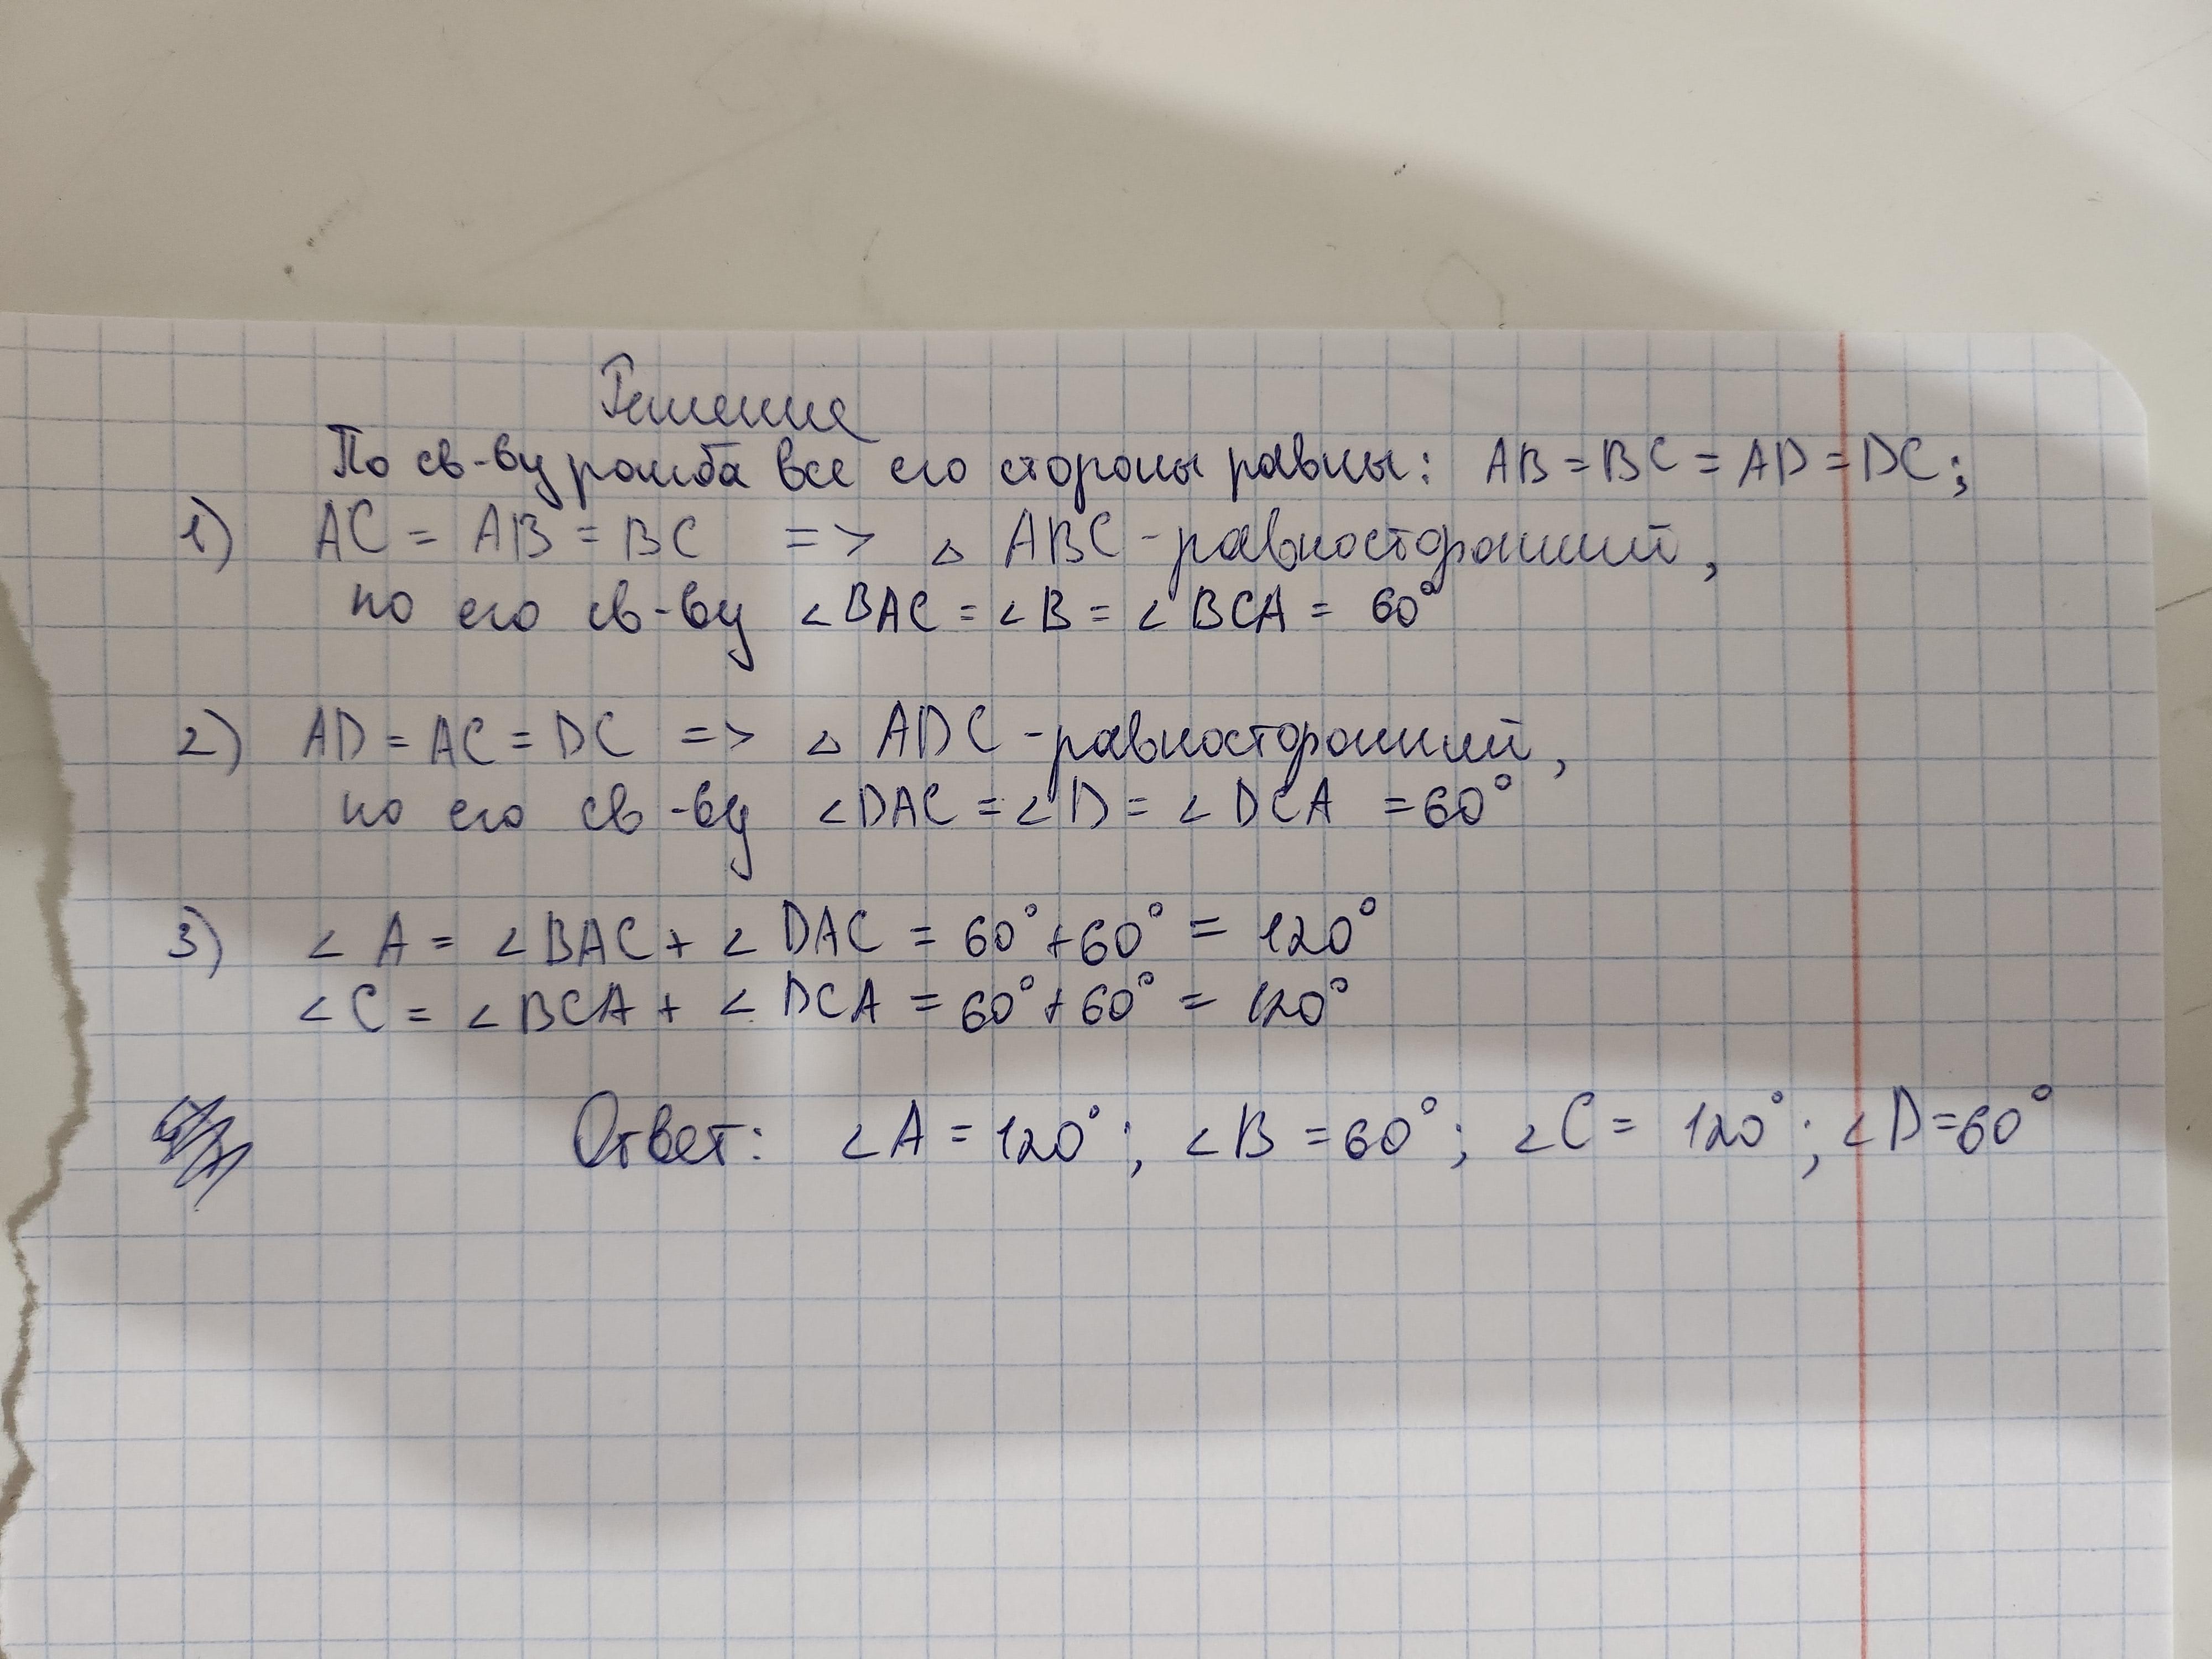 Решение
По св-ву ромба все его стороны равны: AB = BC = AD = DC;
1) AC = AB = BC => △ ABC - равносторонний,
по его св-ву ∠BAC = ∠B = ∠BCA = 60°
2) AD = AC = DC => △ ADC - равносторонний,
по его св-ву ∠DAC = ∠D = ∠DCA = 60°
3) ∠A = ∠BAC + ∠DAC = 60° + 60° = 120°
∠C = ∠BCA + ∠DCA = 60° + 60° = 120°
Ответ: ∠A = 120°; ∠B = 60°; ∠C = 120°; ∠D = 60°